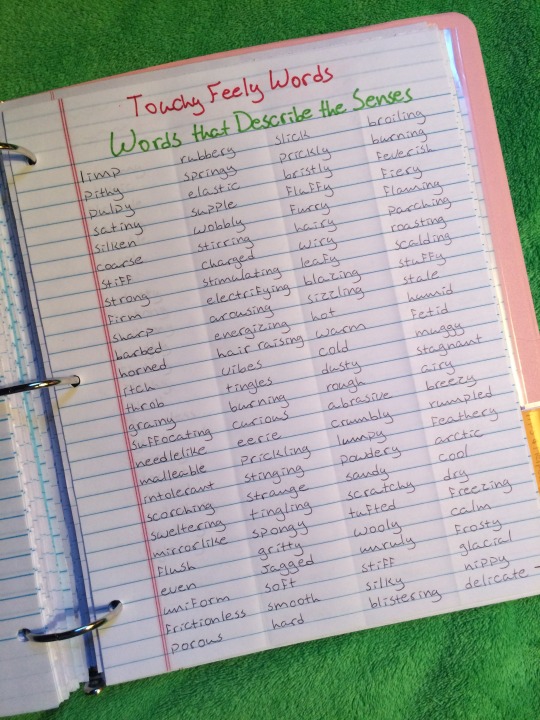 Touchy Feely Words
Words that Describe the Senses
limp
pithy
pulpy
satiny
silken
coarse
stiff
strong
firm
sharp
barbed
horned
itch
throb
grainy
suffocating
needlelike
malleable
intolerant
scorching
sweltering
mirrorlike
flush
even
uniform
frictionless
porous
rubbery
springy
elastic
supple
wobbly
stirring
charged
stimulating
electrifying
arousing
energizing
hair raising
vibes
tingles
burning
curious
eerie
prickling
stinging
strange
tingling
spongy
gritty
Jagged
soft
smooth
hard
slick
prickly
bristly
fluffy
furry
hairy
wiry
leafy
blazing
sizzling
hot
warm
cold
dusty
rough
abrasive
crumbly
lumpy
powdery
sandy
scratchy
tufted
wooly
unruly
stiff
silky
blistering
broiling
burning
feverish
fiery
flaming
parching
roasting
scalding
stuffy
stale
humid
fetid
muggy
stagnant
airy
breezy
rumpled
feathery
arctic
cool
dry
freezing
calm
frosty
glacial
nippy
delicate